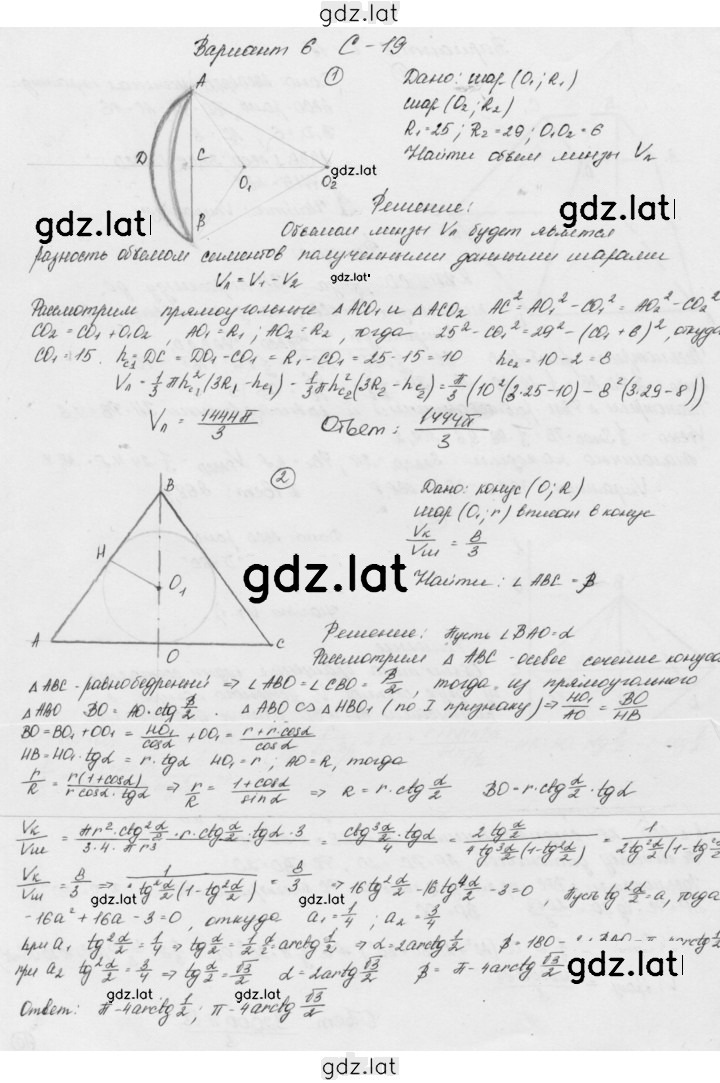 gdz.lat
Вариант 6 С-19
1
Дано: шар (O₁; R₁)
шар (O₂; R₂)
R₁=25; R₂=29; O₁O₂=6
Найти объем линзы Vл
A
D
C
O₁
O₂
B
gdz.lat
gdz.lat
Решение:
Объемом линзы Vл будет является
разность объемом сегментов полученными данными шарами
Vл = V₁ - V₂
gdz.lat
Рассмотрим прямоугольные △ACO₁ и △ACO₂ AC²=AO₁²-CO₁²=AO₂²-CO₂²
CO₂=CO₁+O₁O₂, AO₁=R₁; AO₂=R₂, тогда 25²-CO₁²=29²-(CO₁+6)², откуда
CO₁=15. hc₁=DC=DO₁-CO₁=R₁-CO₁=25-15=10 hc₂=10-2=8
Vл=1/3πhc₁²(3R₁-hc₁)-1/3πhc₂²(3R₂-hc₂)=π/3(10²(3·25-10)-8²(3·29-8))
Vл = 1444π/3 Ответ: 1444π/3
2
B
H
O₁
A
O
C
Дано: конус (O; R)
шар (O₁; r) вписан в конус
Vк/Vш = 8/3
Найти: ∠ABC = β
gdz.lat
Решение: Пусть ∠BAO=α
Рассмотрим △ ABC - осевое сечение конуса
△ABC-равнобедренный ⇒ ∠ABO=∠CBO=β/2, тогда из прямоугольного
△ABO BO=AO·ctg β/2. △ABO ∽ △HBO₁ (по I признаку) ⇒ HO₁/AO = BO/HB
BO=BO₁+OO₁ = HO₁/cosα + OO₁ = r+r·cosα/cosα
HB=HO₁·tgα = r·tgα HO₁=r; AO=R, тогда
r/R = r(1+cosα)/r cosα·tgα ⇒ r/R = 1+cosα/sinα ⇒ R=r·ctg α/2 BO=r·ctg α/2·tgα
Vк/Vш = πr²·ctg² α/2·r·ctg α/2·tgα·3/3·4·πr³ = ctg³ α/2·tgα/4 = 2tg α/2/4tg³ α/2(1-tg² α/2) = 1/2tg² α/2(1-tg² α/2)
Vк/Vш = 8/3 ⇒ 1/tg² α/2(1-tg² α/2) = 8/3 ⇒ 16tg² α/2-16tg⁴ α/2-3=0 Пусть tg² α/2=a, тогда
gdz.lat
gdz.lat
-16a²+16a-3=0, откуда a₁=1/4; a₂=3/4
при a₁ tg² α/2=1/4 ⇒ tg α/2=1/2 α/2=arctg 1/2 ⇒ α=2arctg 1/2 β=180-
при a₂ tg² α/2=3/4 ⇒ tg α/2=√3/2 α=2arctg √3/2 β=π-4arctg √3/2
gdz.lat
gdz.lat
gdz.lat
Ответ: π-4arctg 1/2; π-4arctg √3/2
gdz.lat